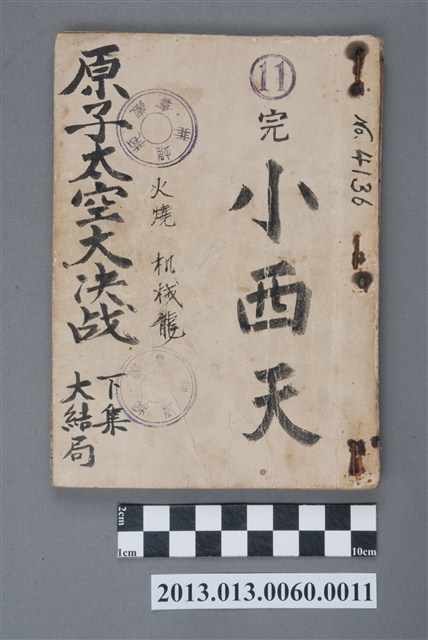 No. 4136
⑪
完
小西天
火燒 机械龍
原子太空大决战
下集
大結局
2cm
1cm
10cm
2013.013.0060.0011